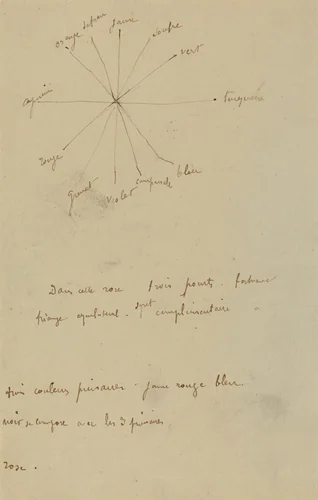 orange safran jaune soufre
vert
turquoise
capucin
rouge
grenat violet campanule bleu
Dans cette rose trois points formant
triange equilateral - sont complimentaire
trois couleurs primaires - jaune rouge bleu
noir se compose avec les 3 primaires,
rose.